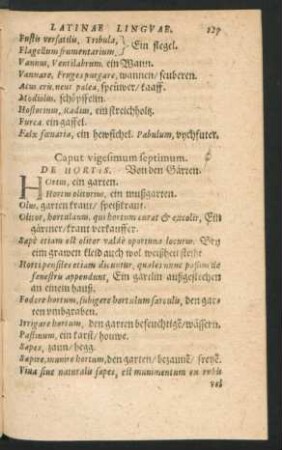 LATINAE LINGVAE. 127
Fustis versatilis, Tribula, } Ein flegel.
Flagellum frumentarium,
Vannus, Ventilabrum. ein Wann.
Vannare, Fruges purgare, wannen/ seuberen.
Acus eris, neut. palea, spreüwer/ kaaff.
Modiolus. schöpffeim.
Hostorium, Radius, ein streichholtz.
Furca. ein gaffel.
Falx fœnaria, ein hewsichel. Pabulum, vychfuter.
Caput vigesimum septimum.
DE HORTIS. Von den Gärten.
Hortus, ein garten.
Hortus olitorius, ein mußgarten.
Olus, garten kraut/ speißkraut.
Olitor, hortulanus, qui hortum curat & excolit, Ein
gärtner/ kraut verkauffer.
Sæpè etiam est olitor valdè oportuna locutus. Bey
ein grawen kleid auch wol weißheit steiht
Horti pensiles etiam dicuntur, quales nunc passim de
fenestris appendunt, Ein gärtlin außgestochen
an einem hauß.
Fodere hortum, subigere hortulum sarculis, den gar⸗
ten vmbgraben.
Irrigare hortum, den garten befeuchtigẽ/ wässern.
Pastinum, ein karst/ houwe.
Sepes, zaun/ hegg.
Sæpire, munire hortum, den garten/ bezaunẽ/ freyẽ.
Viua siue naturalis sepes, est munimentum en rubis
vel